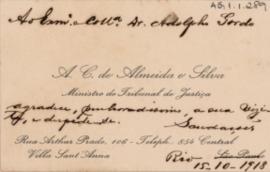 AG.1.1.289
Ao Exmo. Collª. Dr. Adolpho Gordo
A. C. de Almeida e Silva
Ministro do Tribunal de Justiça
agradece, penhoradissimo, a sua
e despede-se. Saudações
Rua Arthur Prado, 106 - Teleph. 854 Central
Villa Sant'Anna
São Paulo
Rio 15-10-1918